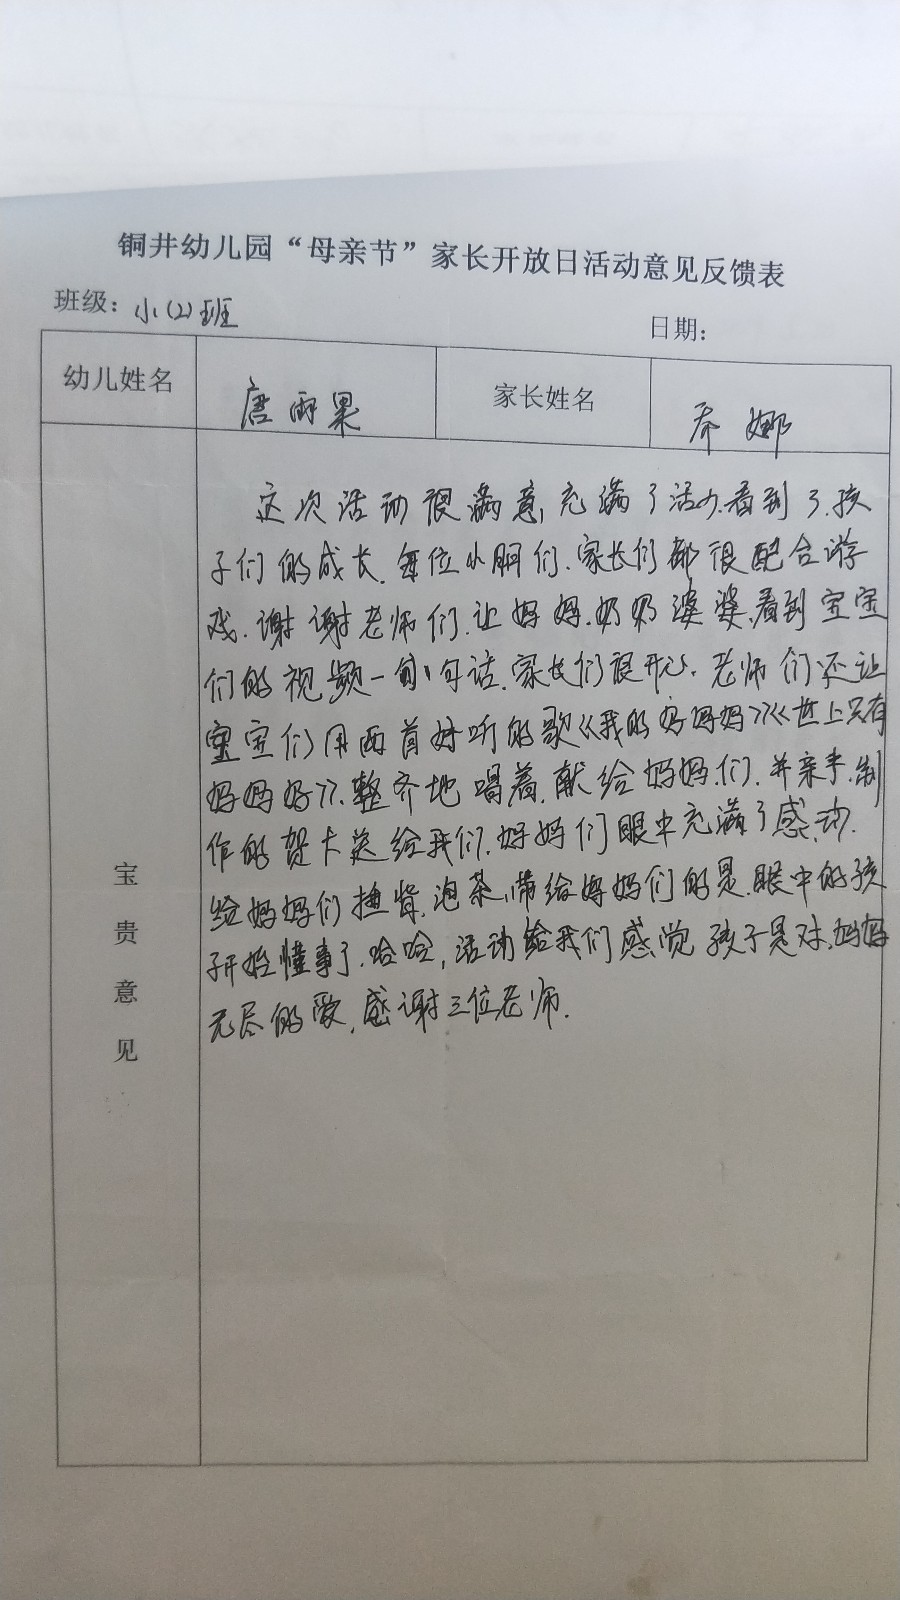 铜井幼儿园“母亲节”家长开放日活动意见反馈表
班级：小(2)班 日期：
幼儿姓名 唐雨果 家长姓名 乔娜
宝贵意见
这次活动很满意,充满了活力.看到了.孩
子们的成长.每位小朋们.家长们都很配合游
戏.谢谢老师们.让妈妈.奶奶婆婆.看到宝宝
们的视频一句句话.家长们很开心.老师们还让
宝宝们用两首好听的歌《我的好妈妈》《世上只有
妈妈好》.整齐地唱着.献给妈妈.们.并亲手.制
作的贺卡送给我们.妈妈们眼中充满了感.动.
给妈妈们捶背.泡茶,带给妈妈们的是.眼中的孩
子开始懂事了.哈哈,活动给我们感觉孩子是对.妈妈
无尽的爱.感谢三位老师.